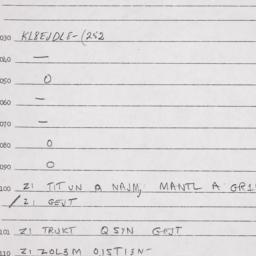 030 KL8EJDLE-(252
040 —
050 O
060 —
070 —
080 O
090 O
100 Z1 TIT UN A NAJM, MANTL A GR1
/Z1 GEJT
101 Z1 TRUKT QSYN GEJT
110 Z1 ZOL3M OJSTIEN-